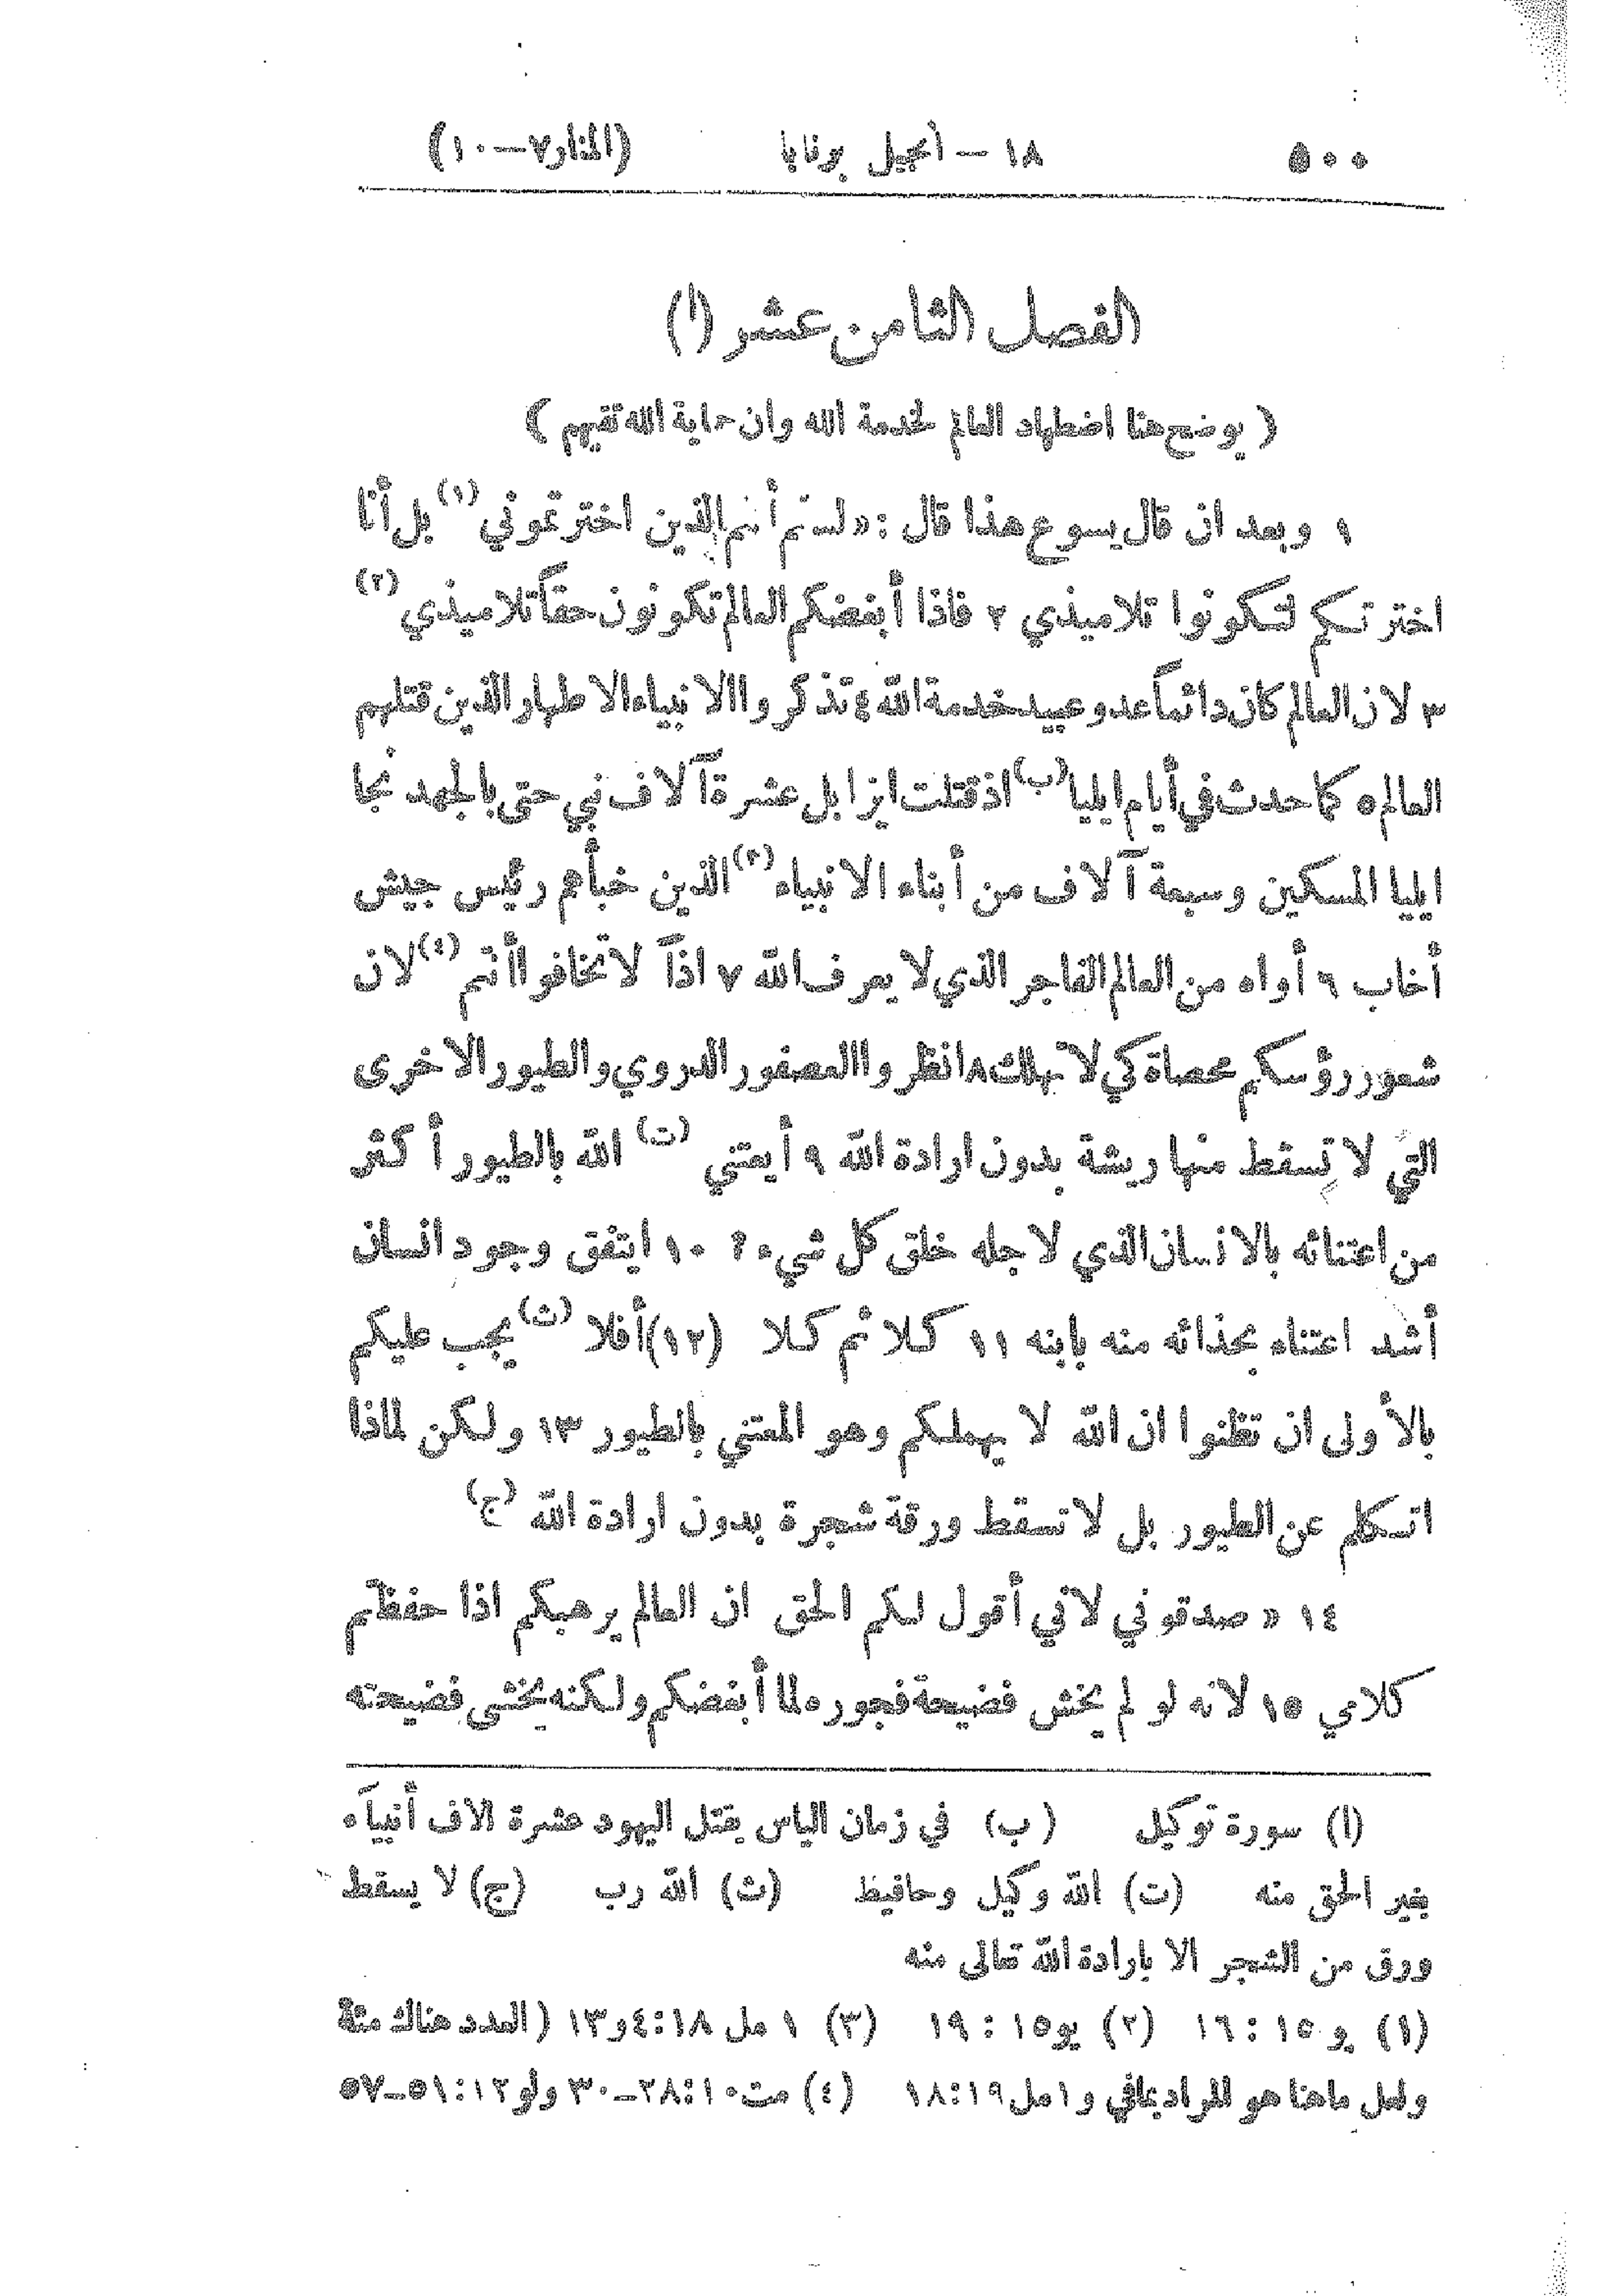 ٥٠٠ ١٨ – انجيل برنابا (المنار٧–١٠)
الفصل الثامن عشر (ا)
( يوضح هنا اضطهاد العالم لخدمة الله وان حماية الله تقيهم )
١ وبعد ان قال يسوع هذا قال : «لستم أنتم الذين اخترتموني (١) بل أنا
اخترتكم لتكونوا تلاميذي ٢ فاذا أبغضكم العالم تكونون حقاً تلاميذي (٢)
٣ لان العالم كان دائماً عدو عبيد خدمة الله ٤ تذكروا الانبياء الاطهار الذين قتلهم
العالم ٥ كما حدث في أيام ايليا (ب) اذ قتلت ايزابل عشرة آلاف نبي حتى بالجهد نجا
ايليا المسكين وسبعة آلاف من أبناء الانبياء (٣) الذين خبأهم رئيس جيش
أخاب ٦ أواه من العالم الفاجر الذي لا يعرف الله ٧ اذاً لا تخافوا أنتم (٤) لان
شعور رؤسكم محصاة كي لا تهلك ٨ انظروا العصفور الدوري والطيور الاخرى
التي لا تسقط منها ريشة بدون ارادة الله ٩ أيعتني (ت) الله بالطيور أكثر
من اعتنائه بالانسان الذي لاجله خلق كل شيء ؟ ١٠ ايتفق وجود انسان
أشد اعتناء بحذائه منه بابنه ١١ كلا ثم كلا (١٢) أفلا (ث) يجب عليكم
بالأولى ان تظنوا ان الله لا يهملكم وهو المعتني بالطيور ١٣ ولكن لماذا
اتكلم عن الطيور بل لا تسقط ورقة شجرة بدون ارادة الله (ج)
١٤ « صدقوني لاني أقول لكم الحق ان العالم يرهبكم اذا حفظتم
كلامي ١٥ لانه لو لم يخش فضيحة فجوره لما أبغضكم ولكنه يخشى فضيحته
(ا) سورة توكيل (ب) في زمان الياس يقتل اليهود عشرة الاف أنبيآء
بغير الحق منه (ت) الله وكيل وحافيظ (ث) الله رب (ج) لا يسقط
ورق من الشجر الا بارادة الله تعالى منه
(١) يو ١٥ : ١٦ (٢) يو١٥ : ١٩ (٣) ١ مل ١٨:٤و١٣ ( العدد هناك مئة
ولعل ماهنا هو المراد بمافي و١مل١٩:١٨ (٤) مت١٠:٢٨–٣٠ ولو١٢:٥١–٥٧